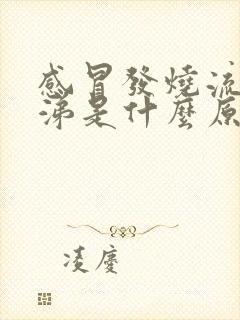 感冒發燒流
涕是什麼原
凌慶